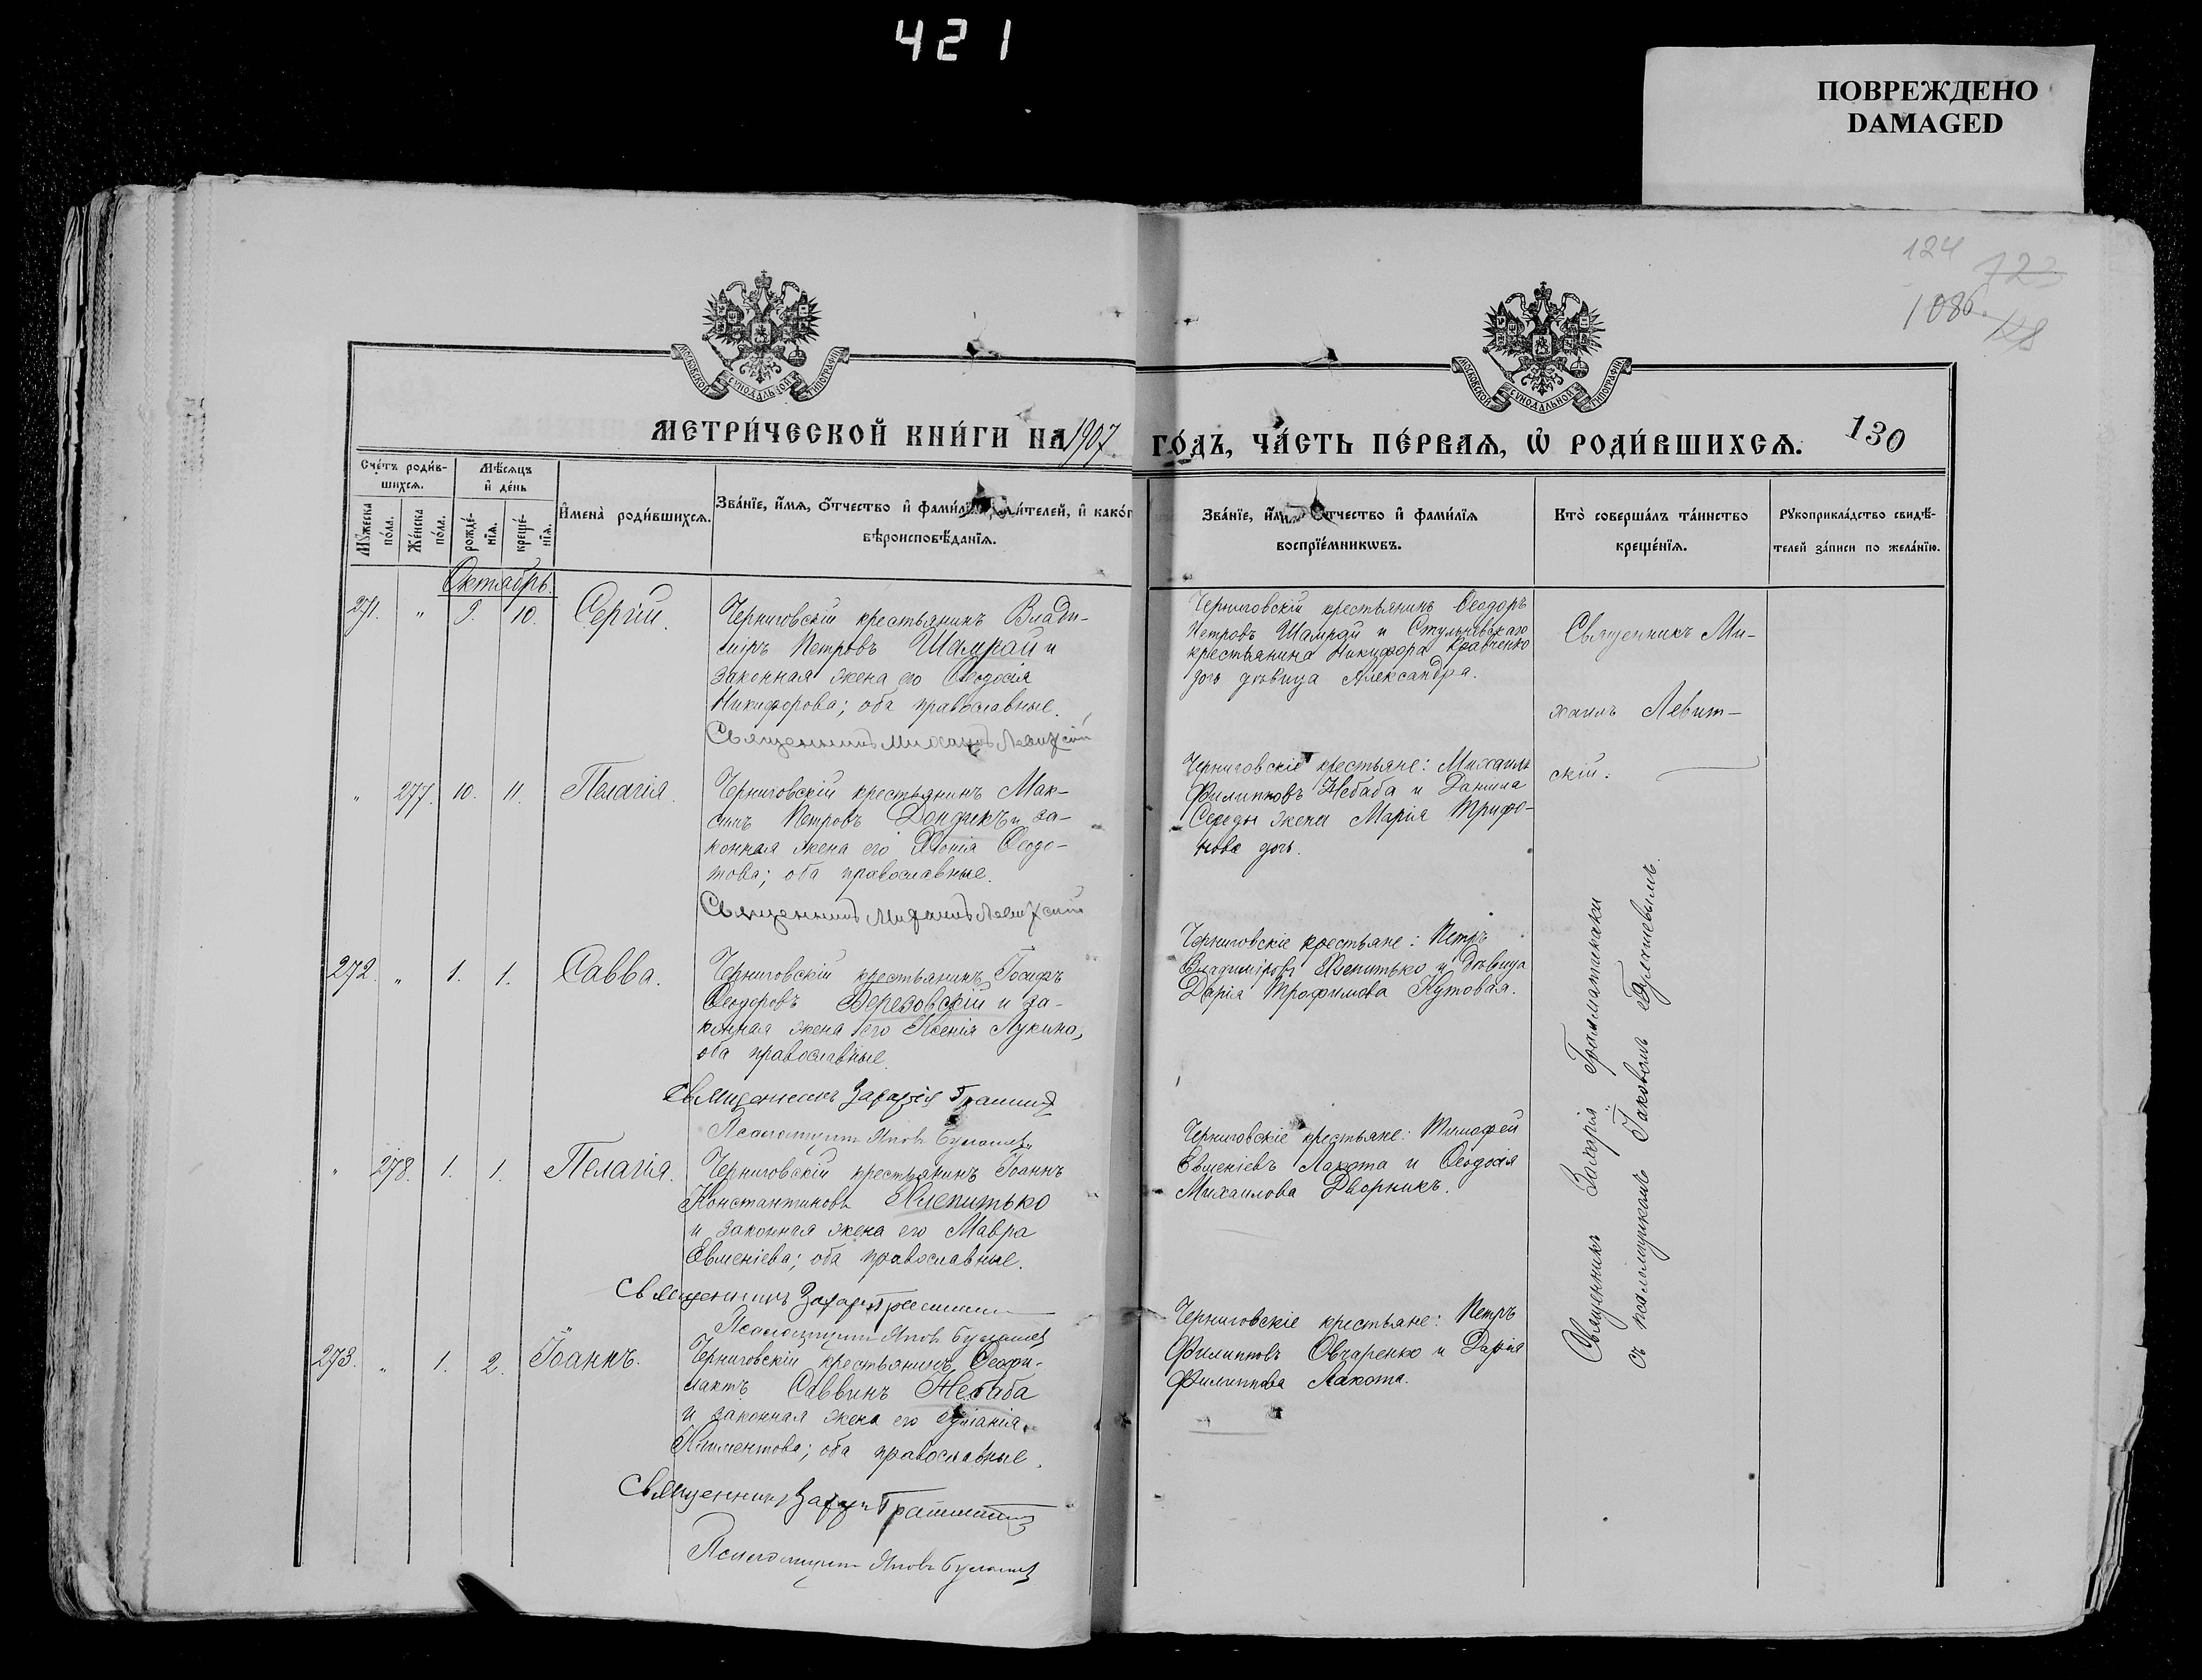 421
ПОВРЕЖДЕНО
DAMAGED
124 123
1086 128
МОСКОВСКОЙ СѴНОДАЛЬНОЙ ТИПОГРАФІИ
МОСКОВСКОЙ СѴНОДАЛЬНОЙ ТИПОГРАФІИ
МЕТРИ́ЧЕСКОЙ КНИ́ГИ НА 1907
ГО́ДЪ, ЧА́СТЬ ПЕ́РВАѦ, Ѡ҆ РОДИ́ВШИХСѦ. 130
Сче́тъ роди́в-
шихсѧ.
Мꙋ́жеска по́ла.
Же́нска по́ла.
Мѣ́сѧцъ и҆ де́нь
рожде́-нїѧ.
креще́-нїѧ.
И҆мена̀ роди́вшихсѧ.
Зва́нїе, и҆́мѧ, ѻ҆́тчество и҆ фами́лїѧ роди́телей, и҆ како́г
вѣроисповѣ́данїѧ.
Зва́нїе, и҆́мѧ, ѻ҆́тчество и҆ фами́лїѧ
воспрїе́мникѡвъ.
Кто̀ соверша́лъ та́инство
креще́нїѧ.
Рꙋкоприкла́дство свидѣ́-
телей за́писи по жела́нїю.
Октябрь.
271. " 9. 10. Сергій.
Черниговскій крестьянинъ Влади-
міръ Петровъ Шамрай и
законная жена его Ѳеодосія
Никифорова; оба православные.
Священникъ Михаилъ Левитскій
Черниговскій крестьянинъ Ѳеодоръ
Петровъ Шамрай и Стульневскаго
крестьянина Никифора Кравченко
дочь дѣвица Александра.
Священникъ Ми-
хаилъ Левит-
скій.
" 277. 10. 11. Пелагія.
Черниговскій крестьянинъ Мак-
симъ Петровъ Дондикъ и за-
конная жена его Хіонія Ѳеодо-
това; оба православные.
Священникъ Михаилъ Левитскій
Черниговскіе крестьяне: Михаилъ
Филипповъ Небаба и Даніила
Середы жена Марія Трифо-
нова дочь.
272. " 1. 1. Савва.
Черниговскій крестьянинъ Іосифъ
Ѳеодоровъ Березовскій и за-
конная жена его Ксенія Лукина,
оба православные.
Священникъ Захарія Грамматик
Псаломщикъ Яковъ
Черниговскіе крестьяне: Петръ
Владиміровъ Хлепитько и дѣвица
Дарія Трофимова Кутовая.
" 278. 1. 1. Пелагія.
Черниговскій крестьянинъ Іоаннъ
Константиновъ Хлепитько
и законная жена его Мавра
Евменіева; оба православные.
Священникъ Захарія Грамматик
Псаломщикъ Яковъ
Черниговскіе крестьяне: Тимофей
Евменіевъ Лакота и Ѳеодосія
Михаилова Дворникъ.
273. " 1. 2. Іоаннъ.
Черниговскій крестьянинъ Ѳеофи-
лактъ Саввинъ Небаба
и законная жена его
Климентова; оба православные.
Священникъ Захарія Грамматик
Псаломщикъ Яковъ
Черниговскіе крестьяне: Петръ
Филипповъ Овчаренко и Дарія
Филиппова Лакота.
Священникъ Захарія Грамматикаки
съ псаломщикомъ Іаковомъ